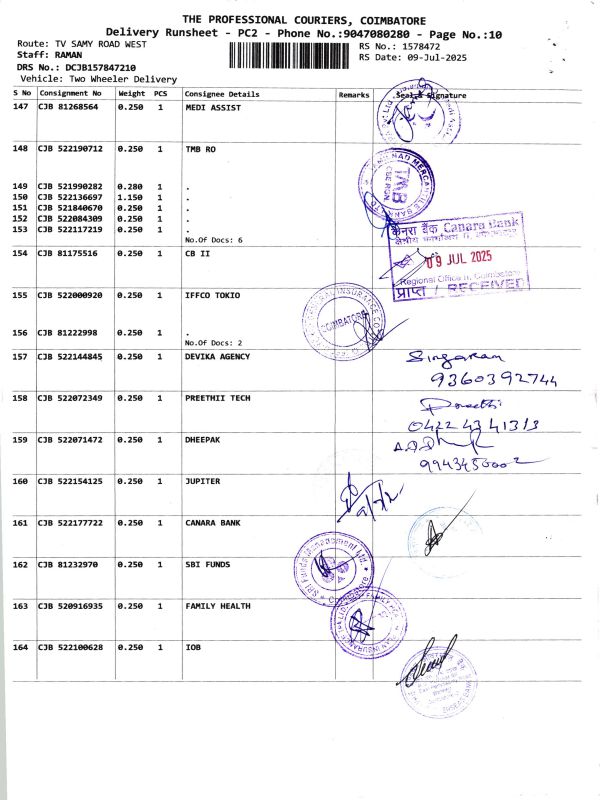 THE PROFESSIONAL COURIERS, COIMBATORE
Delivery Runsheet - PC2 - Phone No.:9047080280 - Page No.:10
Route: TV SAMY ROAD WEST
RS No.: 1578472
Staff: RAMAN
RS Date: 09-Jul-2025
DRS No.: DCJB157847210
Vehicle: Two Wheeler Delivery
S No Consignment No Weight PCS Consignee Details Remarks Seal & Signature
147 CJB 81268564 0.250 1 MEDI ASSIST
148 CJB 522190712 0.250 1 TMB RO
TMB
149 CJB 521990282 0.280 1 .
150 CJB 522136697 1.150 1 .
151 CJB 521840670 0.250 1 .
152 CJB 522084309 0.250 1 .
153 CJB 522117219 0.250 1 .
No.Of Docs: 6
केनरा बैंक Canara Bank
154 CJB 81175516 0.250 1 CB II
09 JUL 2025
Regional Office II, Coimbatore
प्राप्त / RECEIVED
155 CJB 522000920 0.250 1 IFFCO TOKIO
COIMBATORE
156 CJB 81222998 0.250 1 .
No.Of Docs: 2
157 CJB 522144845 0.250 1 DEVIKA AGENCY
Singaram
9360392744
158 CJB 522072349 0.250 1 PREETHII TECH
Preethi
0422 4341313
159 CJB 522071472 0.250 1 DHEEPAK
9943450002
160 CJB 522154125 0.250 1 JUPITER
161 CJB 522177722 0.250 1 CANARA BANK
162 CJB 81232970 0.250 1 SBI FUNDS
SBI Funds Management Ltd.
Coimbatore
163 CJB 520916935 0.250 1 FAMILY HEALTH
164 CJB 522100628 0.250 1 IOB